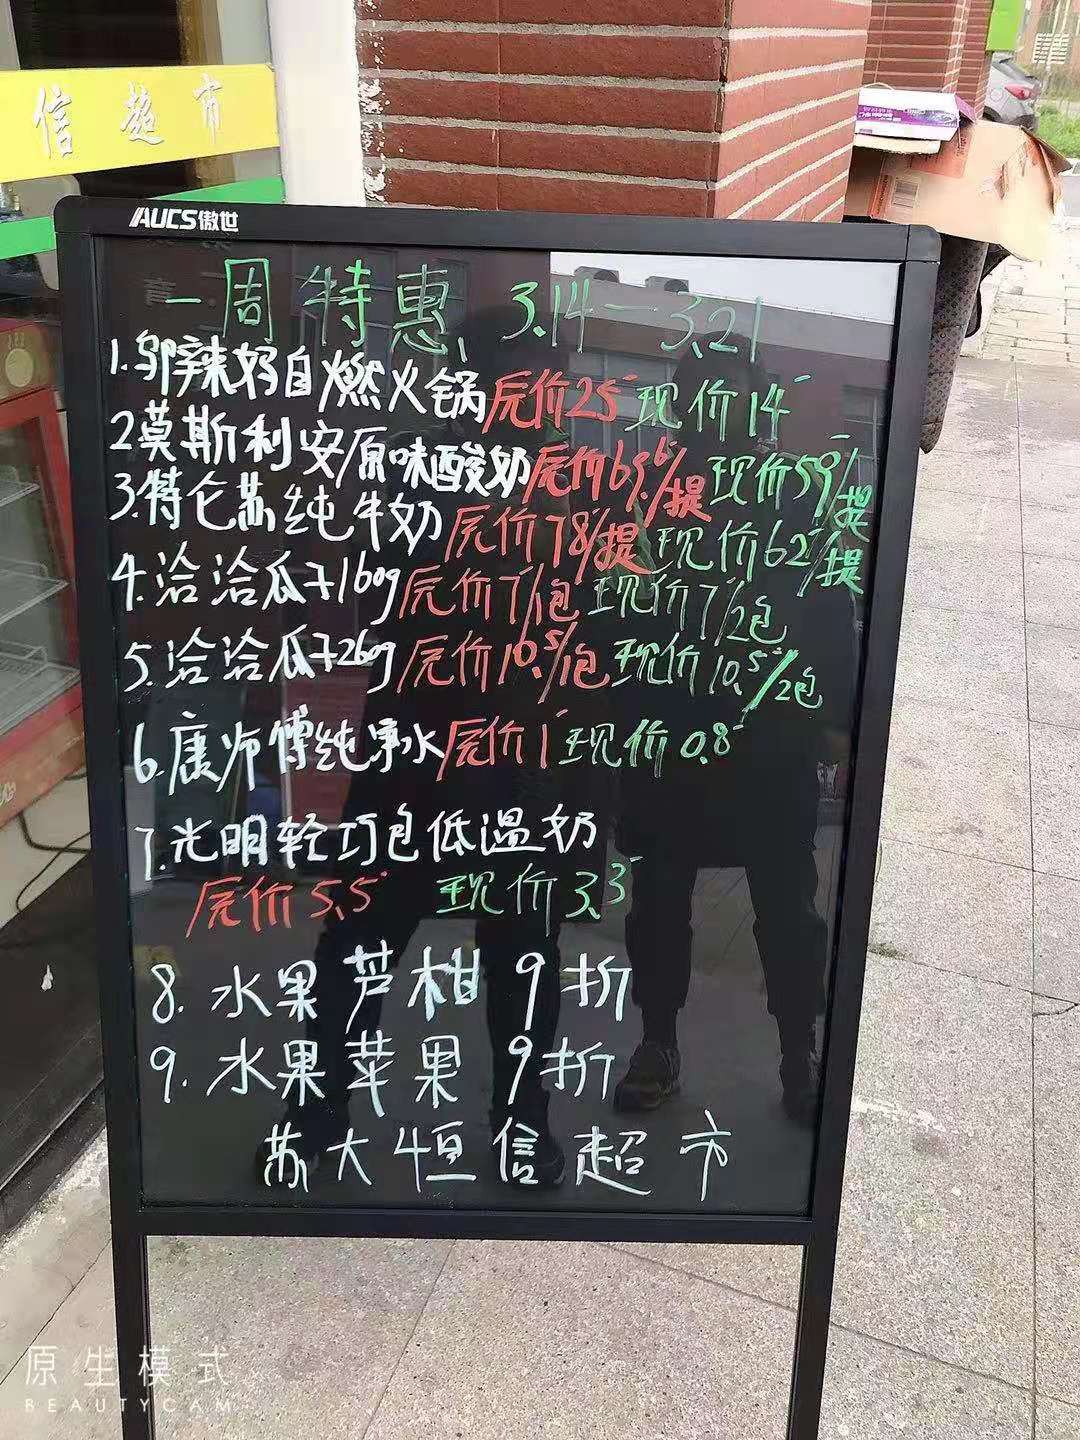 信超市
AUCS傲世
一周特惠 3.14—3.21
1.邬辣妈自燃火锅原价25现价14
2莫斯利安原味酸奶原价69.6/提现价59/提
3.特仑苏纯牛奶原价78/提现价62/提
4.洽洽瓜子160g原价7/包现价7/2包
5.洽洽瓜子260g原价10.5/包现价10.5/2包
6.康师傅纯净水原价1现价0.8
7.光明轻巧包低温奶
原价5.5 现价3.3
8.水果芦柑9折
9.水果苹果9折
苏大恒信超市
原生模式
BEAUTYCAM